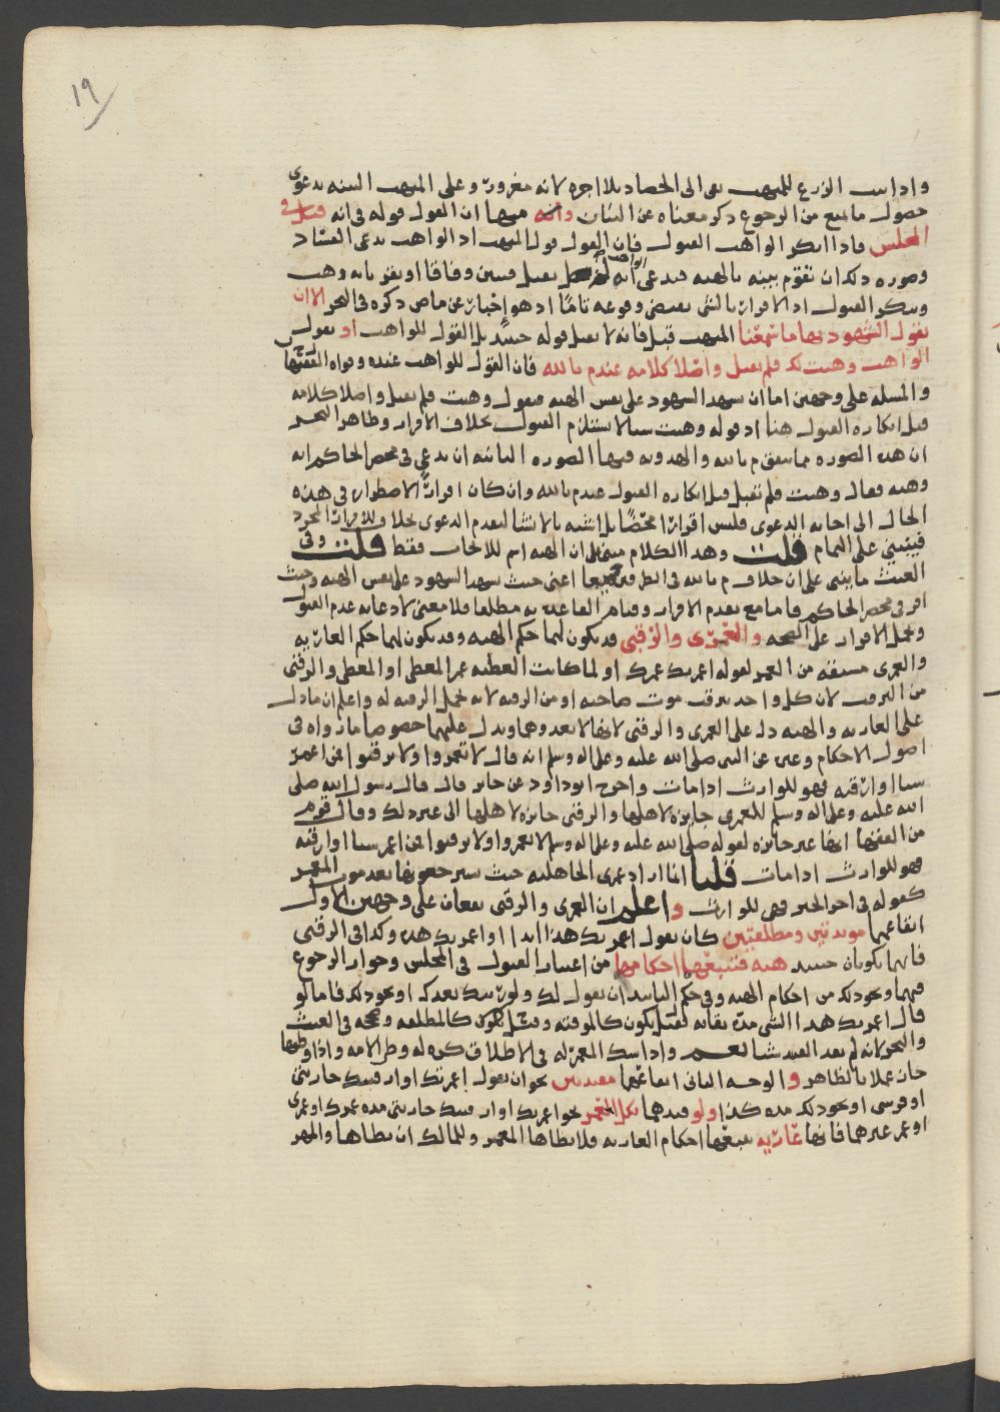 ١٩
واذا الزرع للمتهب بقى الى الحصاد بلا اجرة لانه مغرور وعلى المتهب البينه بدعوى
حصول مانع من الرجوع ذكر معناه عن البيان وانه منها ان القول قوله فى انه قبل فى
المجلس فاذا انكر الواهب القبول فان القول قول المتهب اذ الواهب يدعى الفساد
وصورة ذلك ان تقوم بينه بالهبه فيدعى الواهب انه لم يقبل وفاقا او يقر بانه وهب
وينكر القبول اذ الاقرار بالشى يقتضى وقوعه تاما اذ هو إخبار عن ماض ذكره فى البحر الا ان
يقول الشهود بها ما سمعنا المتهب قبل فانه لا يقبل قوله حينئذ بل القول للواهب او يقول
الواهب وهبت لك فلم تقبل واصلا كلامه عند م بالله فان القول للواهب عنده وقواه الفقها
والمسله على وجهين اما ان يشهد الشهود على نفس الهبه فيقول وهبت فلم يقبل واصلا كلامه
قبل انكاره القبول هنا اذ قوله وهبت لا يستلزم القبول بخلاف الاقرار وظاهر البحر
ان هذه الصوره م بالله والهدويه فيها الصوره الثانيه ان يدعى فى محضر الحاكم انه
وهبه فقال وهبت فلم تقبل قبل انكاره القبول عند م بالله وان كان اقرارًا فى هذه
الحال الى اجابه الدعوى فليس اقرارا محضًا بل اشبه بالانشا لتقدم الدعوى بخلاف الاقرار المجرد
فيبتنى على التمام قلت وهذا الكلام مبنى على ان الهبه اسم للايجاب فقط قلت وفى
الغيث ما يبنى على ان خلاف م بالله فى الطرفين جميعا اعنى حيث شهد الشهود على نفس الهبه وحيث
اقر فى محضر الحاكم فاما مع تقدم الاقرار وقيام الشهاده به مطلقا فلا معنى لادعايه عدم القبول
ويحمل الاقرار على الصحه والعمرى والرقبى قد يكون لهما حكم الهبه وقد يكون لهما حكم العاريه
والعمرى مشتقه من العمر لقوله اعمرتك عمرك او لما كانت العطيه عمر المعطى او المعطى والرقبى
من الترقب لان كل واحد يترقب موت صاحبه او من الرقبه لانه جعل الرقبه له واعلم ان ما دل
على العاريه والهبه دل على العمرى والرقبى لانها لا تعدوهما ويدل عليهما خصوصا ما رواه فى
اصول الاحكام وغيره عن النبى صلى الله عليه وعلى اله وسلم انه قال لا تعمروا ولا ترقبوا فمن اعمر
شيا او ارقبه فهو للوارث اذا مات واخرج ابو داود عن جابر قال قال رسول الله صلى
الله عليه وعلى اله وسلم العمرى جايزه لاهلها والرقبى جايزه لاهلها الى غير ذلك وقال قوم
من الفقها انها غير جايزه لقوله صلى الله عليه وعلى اله وسلم لا تعمروا ولا ترقبوا فمن اعمر شيا او ارقبه
فهو للوارث اذا مات قلنا انما اراد عمرى الجاهليه حيث يسترجعونها بعد موت المعمر
كقوله فى اخر الخبر فهى للوارث واعلم ان العمرى والرقبى يقعان على وجهين الاول
ايقاعهما مؤبدتين ومطلقتين كان يقول اعمرتك هذا ابدا او اعمرتك هذه وكذا فى الرقبى
فانهما يكونان حينئذ هبه فتتبعهما احكامها من اعتبار القبول فى المجلس وجواز الرجوع
فيهما ونحو ذلك من احكام الهبه وفى حكم التابيد ان يقول لك ولورثتك بعدك او نحو ذلك فاما لو
قال اعمرتك هذا الشى مدة بقائه فقيل يكون كالموقته وقيل تكون كالمطلقه وصححه فى الغيث
والبحر لانه لم يفد القيد شيا نعم واذا المعمر له فى الاطلاق كره له وطى الامه واذا وطيها
جاز عملا بالظاهر والوجه الثانى ايقاعهما مقيدتين نحو ان يقول اعمرتك او ارقبتك جاريتى
او فرسى او نحو ذلك مدة كذا ولو قيدهما بكل العمر نحو اعمرتك او ارقبتك جاريتى مدة عمرك او عمرى
او عمر غيرهما فانها عارية تتبعها احكام العاريه فلا يطاها المعمر وللمالك ان يطاها والمهر